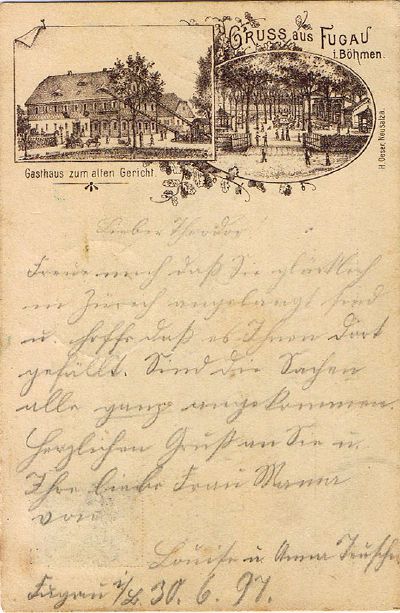 GRUSS aus FUGAU
i. Böhmen.
H. Oeser, Neusalza.
Gasthaus zum alten Gericht.
Lieber Theodor
Freue mich daß Sie glücklich
in Zürich angelangt sind
u. hoffe daß es Ihnen dort
gefällt. Sind die Sachen
alle ganz angekommen.
Herzlichen Gruß an Sie u.
Ihre liebe Frau Mama
von
Louise u. Anna
Fugau i/B. 30. 6. 97.